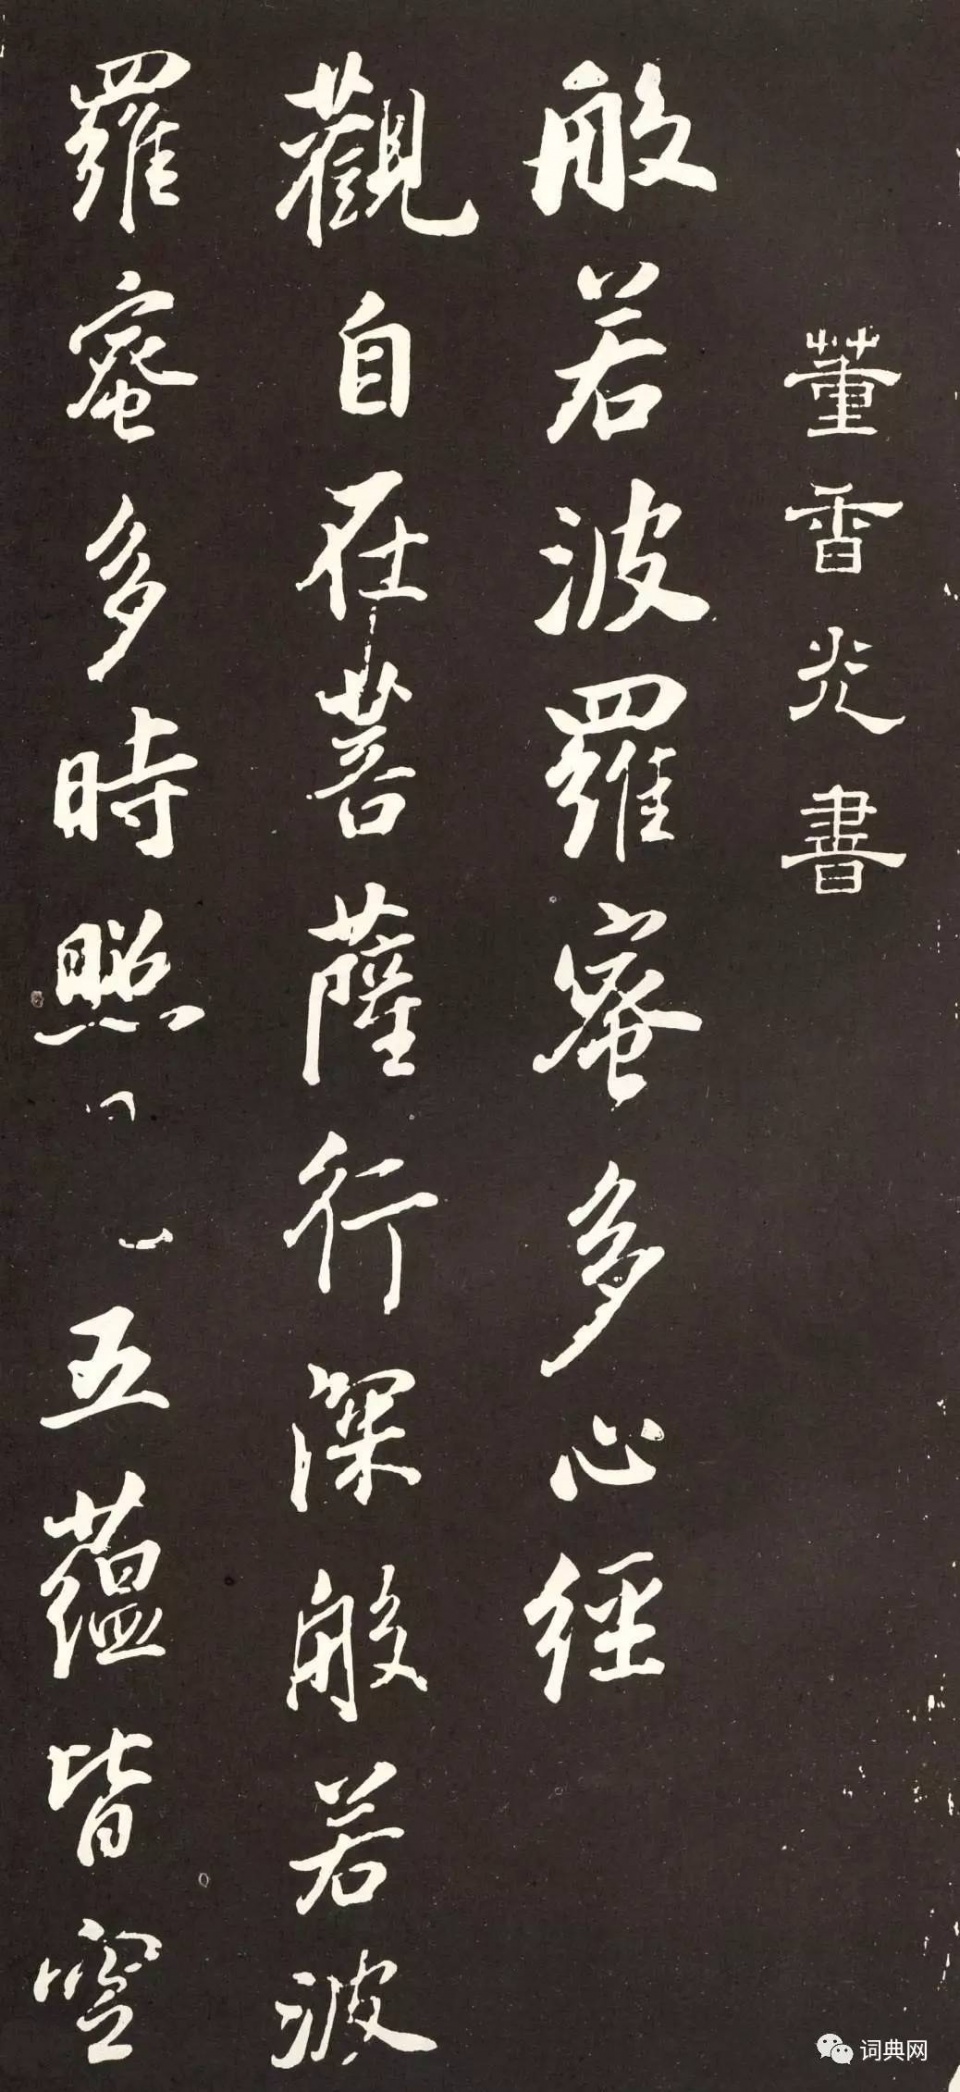 董香光書
般若波羅蜜多心經
觀自在菩薩行深般若波
羅蜜多時照五蘊皆空
词典网